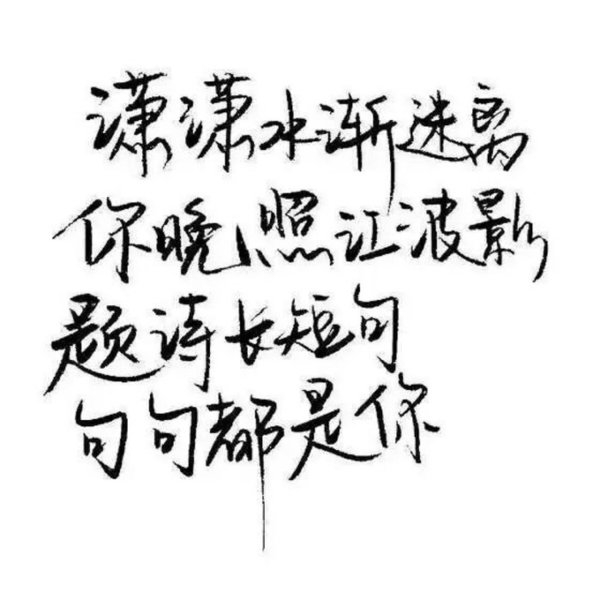 潇潇水渐迷离
你晚照江波影
题诗长短句
句句都是你